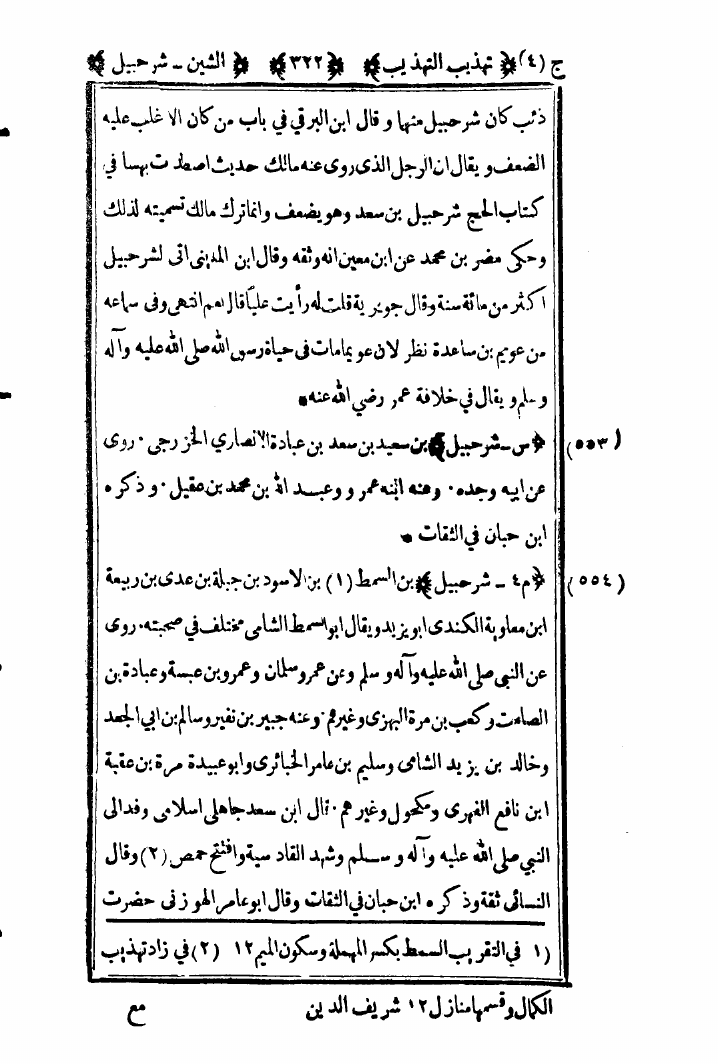 ج (٤) ﴿ تهذيب التهذيب ﴾ ﴿ ٣٢٢ ﴾ ﴿ الشين - شرحبيل ﴾
ذئب كان شرحبيل متهما و قال ابن البرقي في باب من كان الاغلب عليه
الضعف و يقال ان الرجل الذى روى عنه مالك حديث اصطدت نهسا في
كتاب الحج شرحبيل بن سعد وهو يضعف وانما ترك مالك تسميته لذلك
وحكى مضر بن محمد عن ابن معين انه وثقه وقال ابن المدينى اتى لشرحبيل
اكثر من مائة سنة وقال جويرية قلت له رأيت علياً قال نعم انتهى وفى سماعه
من عويم بن ساعدة نظر لان عويما مات فى حياة رسول الله صلى الله عليه وآله
وسلم و يقال في خلافة عمر رضي الله عنه *
(٥٥٣) ﴿ س - شرحبيل ﴾ بن سعيد بن سعد بن عبادة الانصاري الخزرجى ٠ روى
عن ابيه وجده ٠ وعنه ابنه عمرو وعبد الله بن محمد بن عقيل ٠ و ذكره
ابن حبان في الثقات *
(٥٥٤) ﴿ م ٤ - شرحبيل ﴾ بن السمط (١) بن الاسود بن جبلة بن عدى بن ربيعة
ابن معاوية الكندى ابو يزيد ويقال ابو السمط الشامى مختلف في صحبته ٠ روى
عن النبى صلى الله عليه وآله و سلم وعن عمر وسلمان وعمرو بن عبسة وعبادة بن
الصامت وكعب بن مرة البهزى وغيرهم ٠ وعنه جبير بن نفير وسالم بن ابي الجعد
وخالد بن يزيد الشامى وسليم بن عامر الخبائرى وابو عبيدة مرة بن عقبة
ابن نافع الفهرى ومكحول وغيرهم ٠ قال ابن سعد جاهلى اسلامى وفد الى
النبي صلى الله عليه وآله و سلم وشهد القادسية وافتتح حمص (٢) وقال
النسائى ثقة وذكره ابن حبان في الثقات وقال ابو عامر الهوزنى حضرت
(١) في التقريب السمط بكسر المهملة وسكون الميم ١٢ (٢) في زاد تهذيب
الكمال وقسمها منازل ١٢ شريف الدين
مع